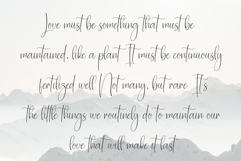 Love must be something that must be
maintained, like a plant. It must be continuously
fertilized well. Not many, but rare. It's
the little things we routinely do to maintain our
love that will make it last